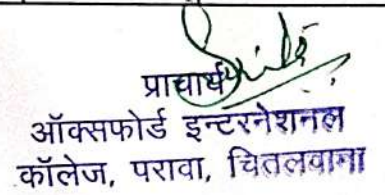 प्राचार्य
ऑक्सफोर्ड इन्टरनेशनल
कॉलेज, परावा, चितलवाना